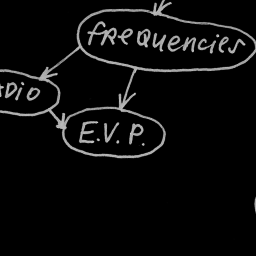 fREquENciES
ADio
E.V.P.